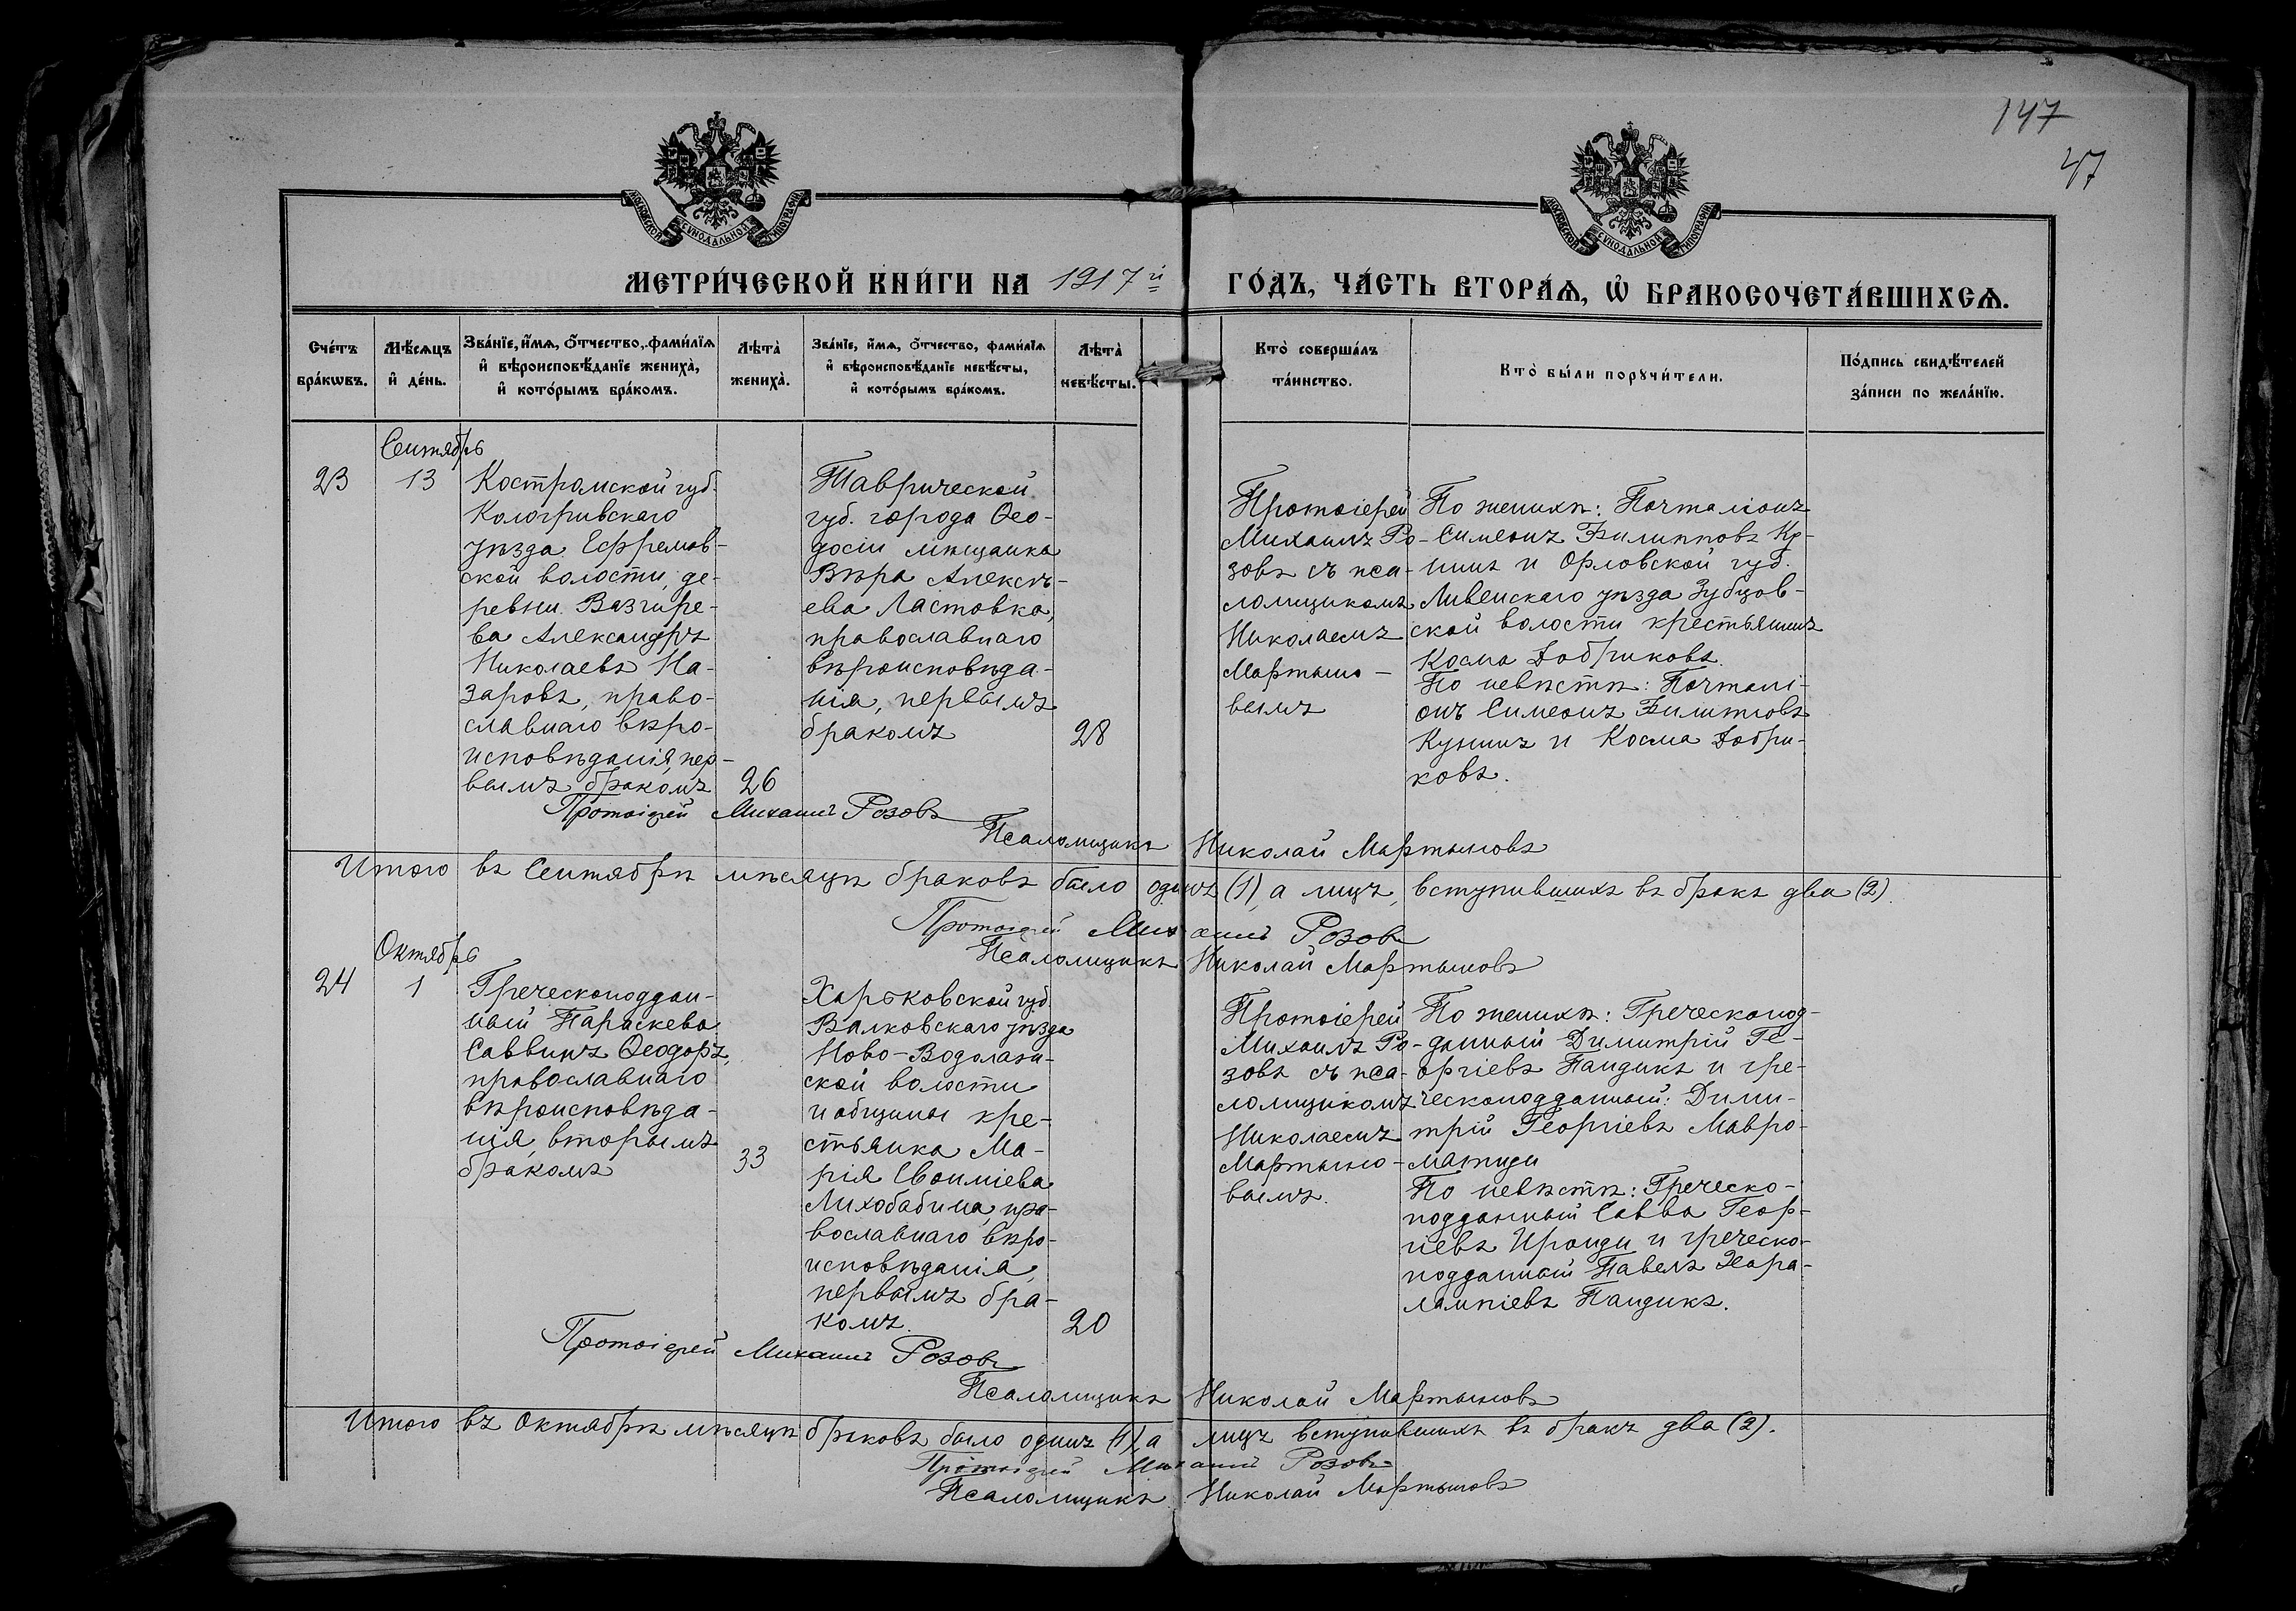 147
47
МОСКОВСКОЙ СѴНОДАЛЬНОЙ ТИПОГРАФІИ
МОСКОВСКОЙ СѴНОДАЛЬНОЙ ТИПОГРАФІИ
МЕТРИ́ЧЕСКОЙ КНИ́ГИ НА 1917й ГО́ДЪ, ЧА́СТЬ ВТОРА́Ѧ, Ѡ҆ БРАКОСОЧЕТА́ВШИХСѦ.
Сче́тъ бра́кѡвъ.
Мѣ́сѧцъ и҆ де́нь.
Зва́нїе, и҆́мѧ, о҆́тчество, фами́лїѧ и҆ вѣроисповѣ́данїе жениха̀, и҆ кото́рымъ бра́комъ.
Лѣта̀ жениха̀.
Зва́нїе, и҆́мѧ, о҆́тчество, фами́лїѧ и҆ вѣроисповѣ́данїе невѣ́сты, и҆ кото́рымъ бра́комъ.
Лѣта̀ невѣ́сты.
Кто̀ соверша́лъ та́инство.
Кто̀ бы́ли порꙋчи́тели.
По́дпись свидѣ́телей за́писи по жела́нїю.
Сентябрь
23
13
Костромской губ.
Кологривскаго
уѣзда Ефремов-
ской волости, де-
ревни Вазгире-
ва Александръ
Николаевъ На-
заровъ, право-
славнаго вѣро-
исповѣданія, пер-
вымъ бракомъ
26
Таврической
губ. города Ѳео-
досіи мѣщанка
Вѣра Алексѣ-
ева Ластовка,
православнаго
вѣроисповѣда-
нія, первымъ
бракомъ
28
Протоіерей
Михаилъ Ро-
зовъ съ пса-
ломщикомъ
Николаемъ
Мартыно-
вымъ
По женихѣ: Почталіонъ
Симеонъ Филипповъ Ку-
нинъ и Орловской губ.
Ливенскаго уѣзда Зубцов-
ской волости крестьянинъ
Косма Добриковъ.
По невѣстѣ: Почталі-
онъ Симеонъ Филипповъ
Кунинъ и Косма Добри-
ковъ.
Протоіерей Михаилъ Розовъ
Псаломщикъ Николай Мартыновъ
Итого въ Сентябрѣ мѣсяцѣ браковъ было одинъ (1), а лицъ, вступившихъ въ бракъ два (2).
Протоіерей Михаилъ Розовъ
Псаломщикъ Николай Мартыновъ
Октябрь
24
1
Греческоподдан-
ный Параскева
Саввинъ Ѳеодоръ,
православнаго
вѣроисповѣда-
нія, вторымъ
бракомъ
33
Харьковской губ.
Валковскаго уѣзда
Ново-Водолаж-
ской волости
и общины кре-
стьянка Ма-
рія Евѳиміева
Лихобабина, пра-
вославнаго вѣро-
исповѣданія,
первымъ бра-
комъ.
20
Протоіерей
Михаилъ Ро-
зовъ съ пса-
ломщикомъ
Николаемъ
Мартыно-
вымъ.
По женихѣ: Греческопод-
данный Димитрій Ге-
оргіевъ Пандикъ и гре-
ческоподданный: Дими-
трій Георгіевъ Мавро-
матиди
По невѣстѣ: Греческо-
подданный Савва Геор-
гіевъ Ироиди и греческо-
подданный Павелъ Хара-
лампіевъ Пандикъ.
Протоіерей Михаилъ Розовъ
Псаломщикъ Николай Мартыновъ
Итого въ Октябрѣ мѣсяцѣ браковъ было одинъ (1), а лицъ вступившихъ въ бракъ два (2).
Протоіерей Михаилъ Розовъ
Псаломщикъ Николай Мартыновъ